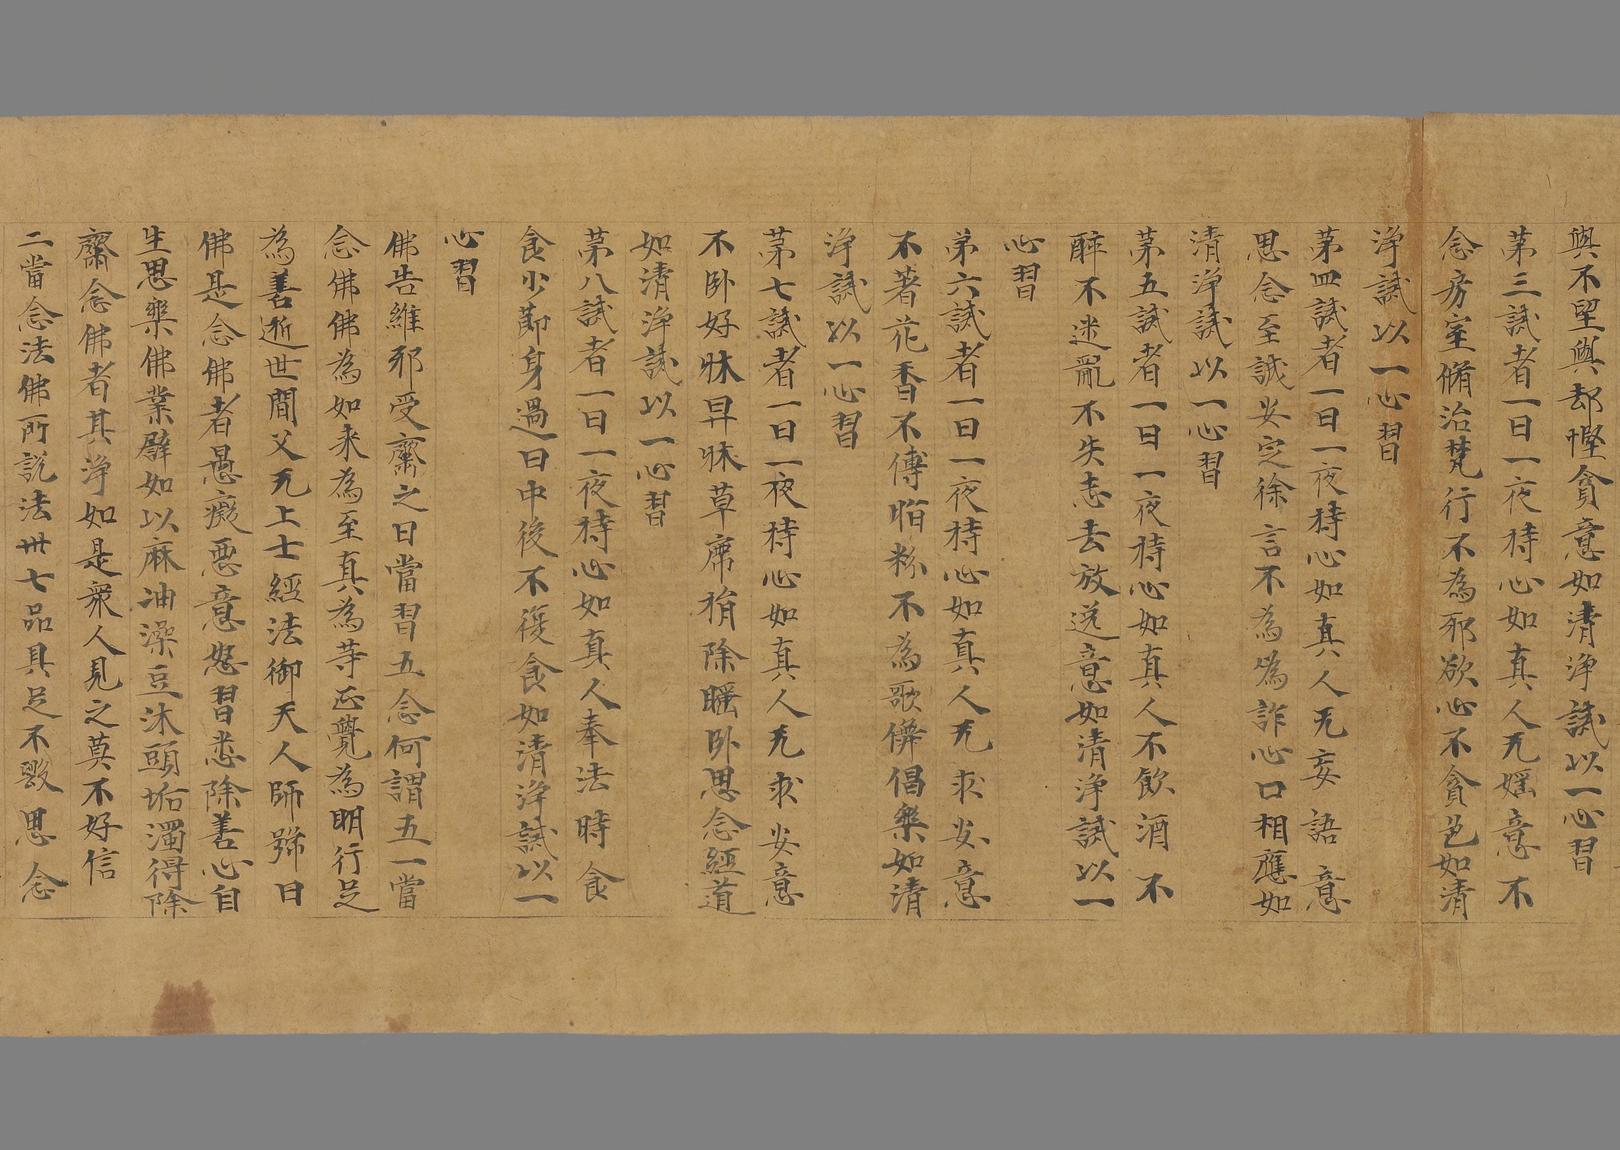 與不望與却慳貪意如清淨誡以一心習
苐三誡者一日一夜持心如真人无婬意不
念房室脩治梵行不為邪欲心不貪色如清
淨誡以一心習
苐四誡者一日一夜持心如真人无妄語意
思念至誠安定徐言不為偽詐心口相應如
清淨誡以一心習
苐五誡者一日一夜持心如真人不飲酒不
醉不迷亂不失志去放逸意如清淨誡以一
心習
苐六誡者一日一夜持心如真人无求安意
不著花香不傅脂粉不為歌儛倡樂如清
淨誡以一心習
苐七誡者一日一夜持心如真人无求安意
不卧好牀卑牀草席捐除睡卧思念經道
如清淨誡以一心習
苐八誡者一日一夜持心如真人奉法時食
食少節身過日中後不復食如清淨誡以一
心習
佛告維邪受齋之日當習五念何謂五一當
念佛佛為如来為至真為等正覺為明行足
為善逝世間父无上士經法御天人師號曰
佛是念佛者愚癡惡意怒習悉除善心自
生思樂佛業譬如以麻油澡豆沐頭垢濁得除
齋念佛者其淨如是衆人見之莫不好信
二當念法佛所說法卅七品具足不毀思念